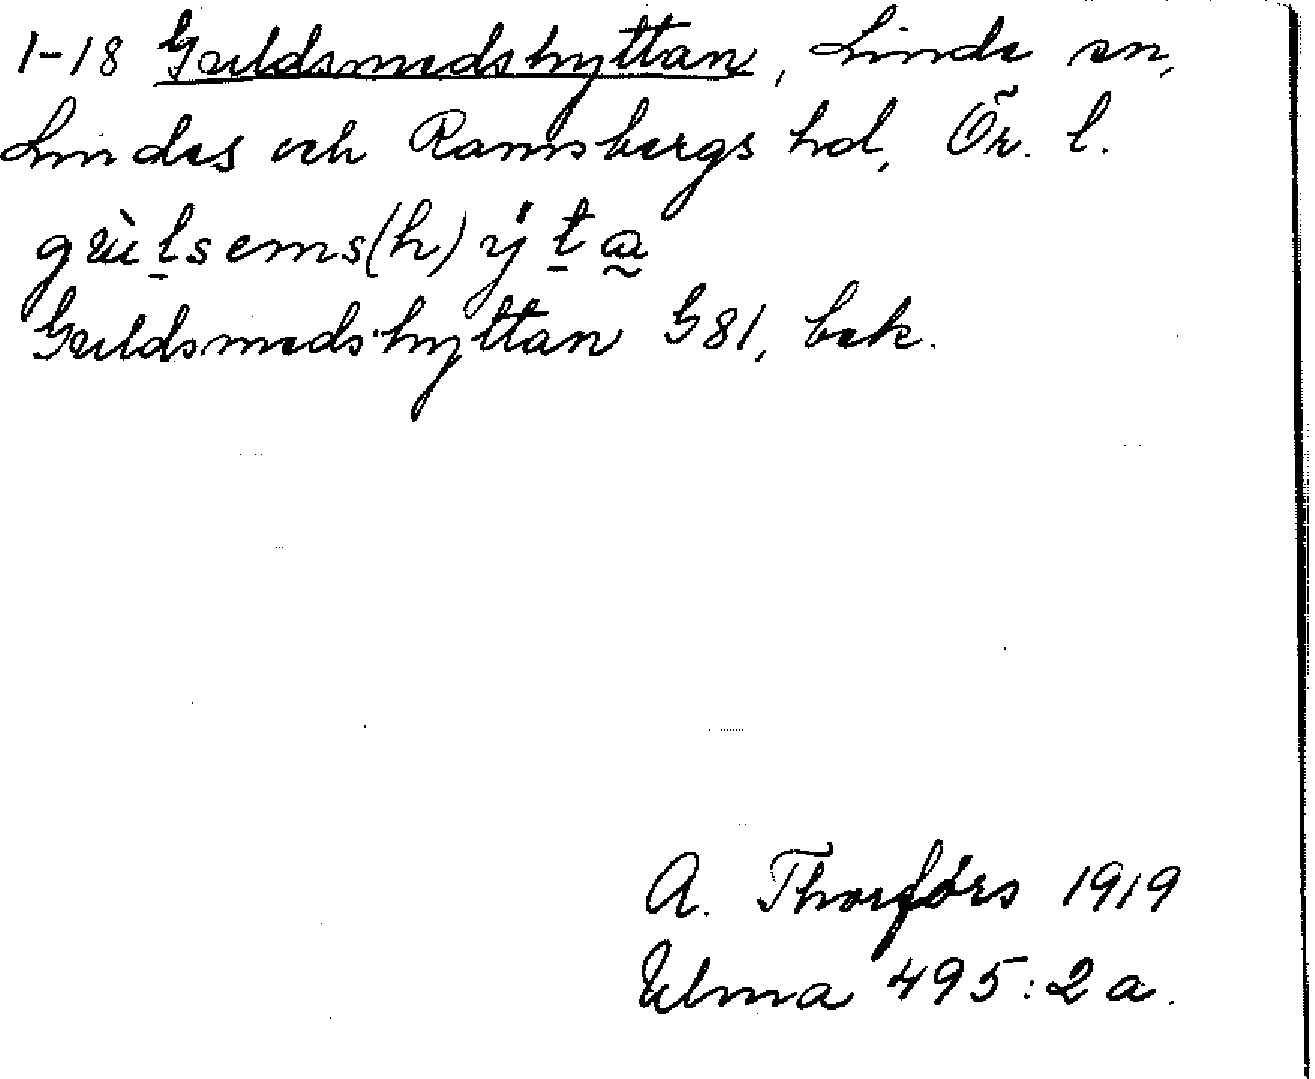 1-18 Guldsmedshyttan, Linde sn,
Lindes och Ramsbergs hd, Ör. l.
Guldsmedshyttan G81, bek.
A. Thorförs 1919
Ulma 495:2a.